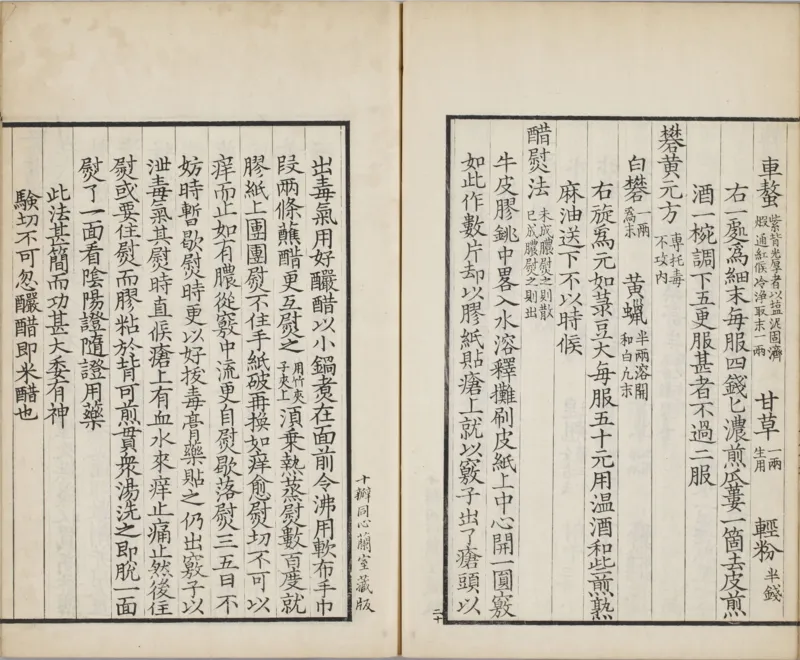 車螯紫背光厚者以塩泥固濟煅通紅候冷淨取末一兩 甘草一兩生用 輕粉半錢
右一處爲細末每服四錢匕濃煎瓜蔞一箇去皮煎
酒一椀調下五更服甚者不過二服
礬黄元方專托毒不攻内
白礬一兩爲末 黄蝋半兩溶開和白凡末
右旋爲元如菉豆大每服五十元用温酒和些煎熟
麻油送下不以時候
醋熨法未成膿熨之則散已成膿熨之則出
牛皮膠銚中畧入水溶釋攤刷皮紙上中心開一圓竅
如此作數片却以膠紙貼瘡上就以竅子出了瘡頭以
二十
十瓣同心蘭室藏版
出毒氣用好釅醋以小鍋煑在面前令沸用軟布手巾
段兩條蘸醋更互熨之用竹夾子夾上湏乗熱蒸熨數百度就
膠紙上團團熨不住手紙破再換如痒愈熨切不可以
痒而止如有膿從竅中流更自熨歇落熨三五日不
妨時暫歇熨時更以好拔毒膏藥貼之仍出竅子以
泄毒氣其熨時直候瘡上有血水來痒止痛止然後住
熨或要住熨而膠粘於背可煎貫衆湯洗之即脫一面
熨了一面看隂陽證隨證用藥
此法甚簡而功甚大委有神
騐切不可忽釅醋即米醋也